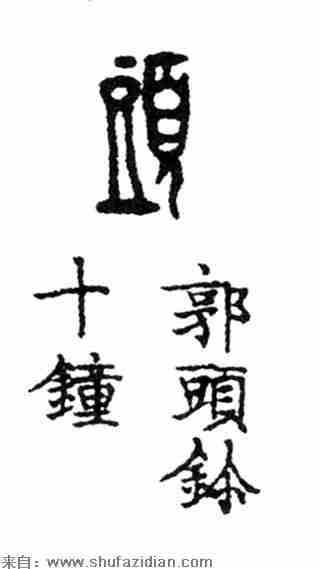 頭
郭頭鉩
十鐘
来自：www.shufazidian.com